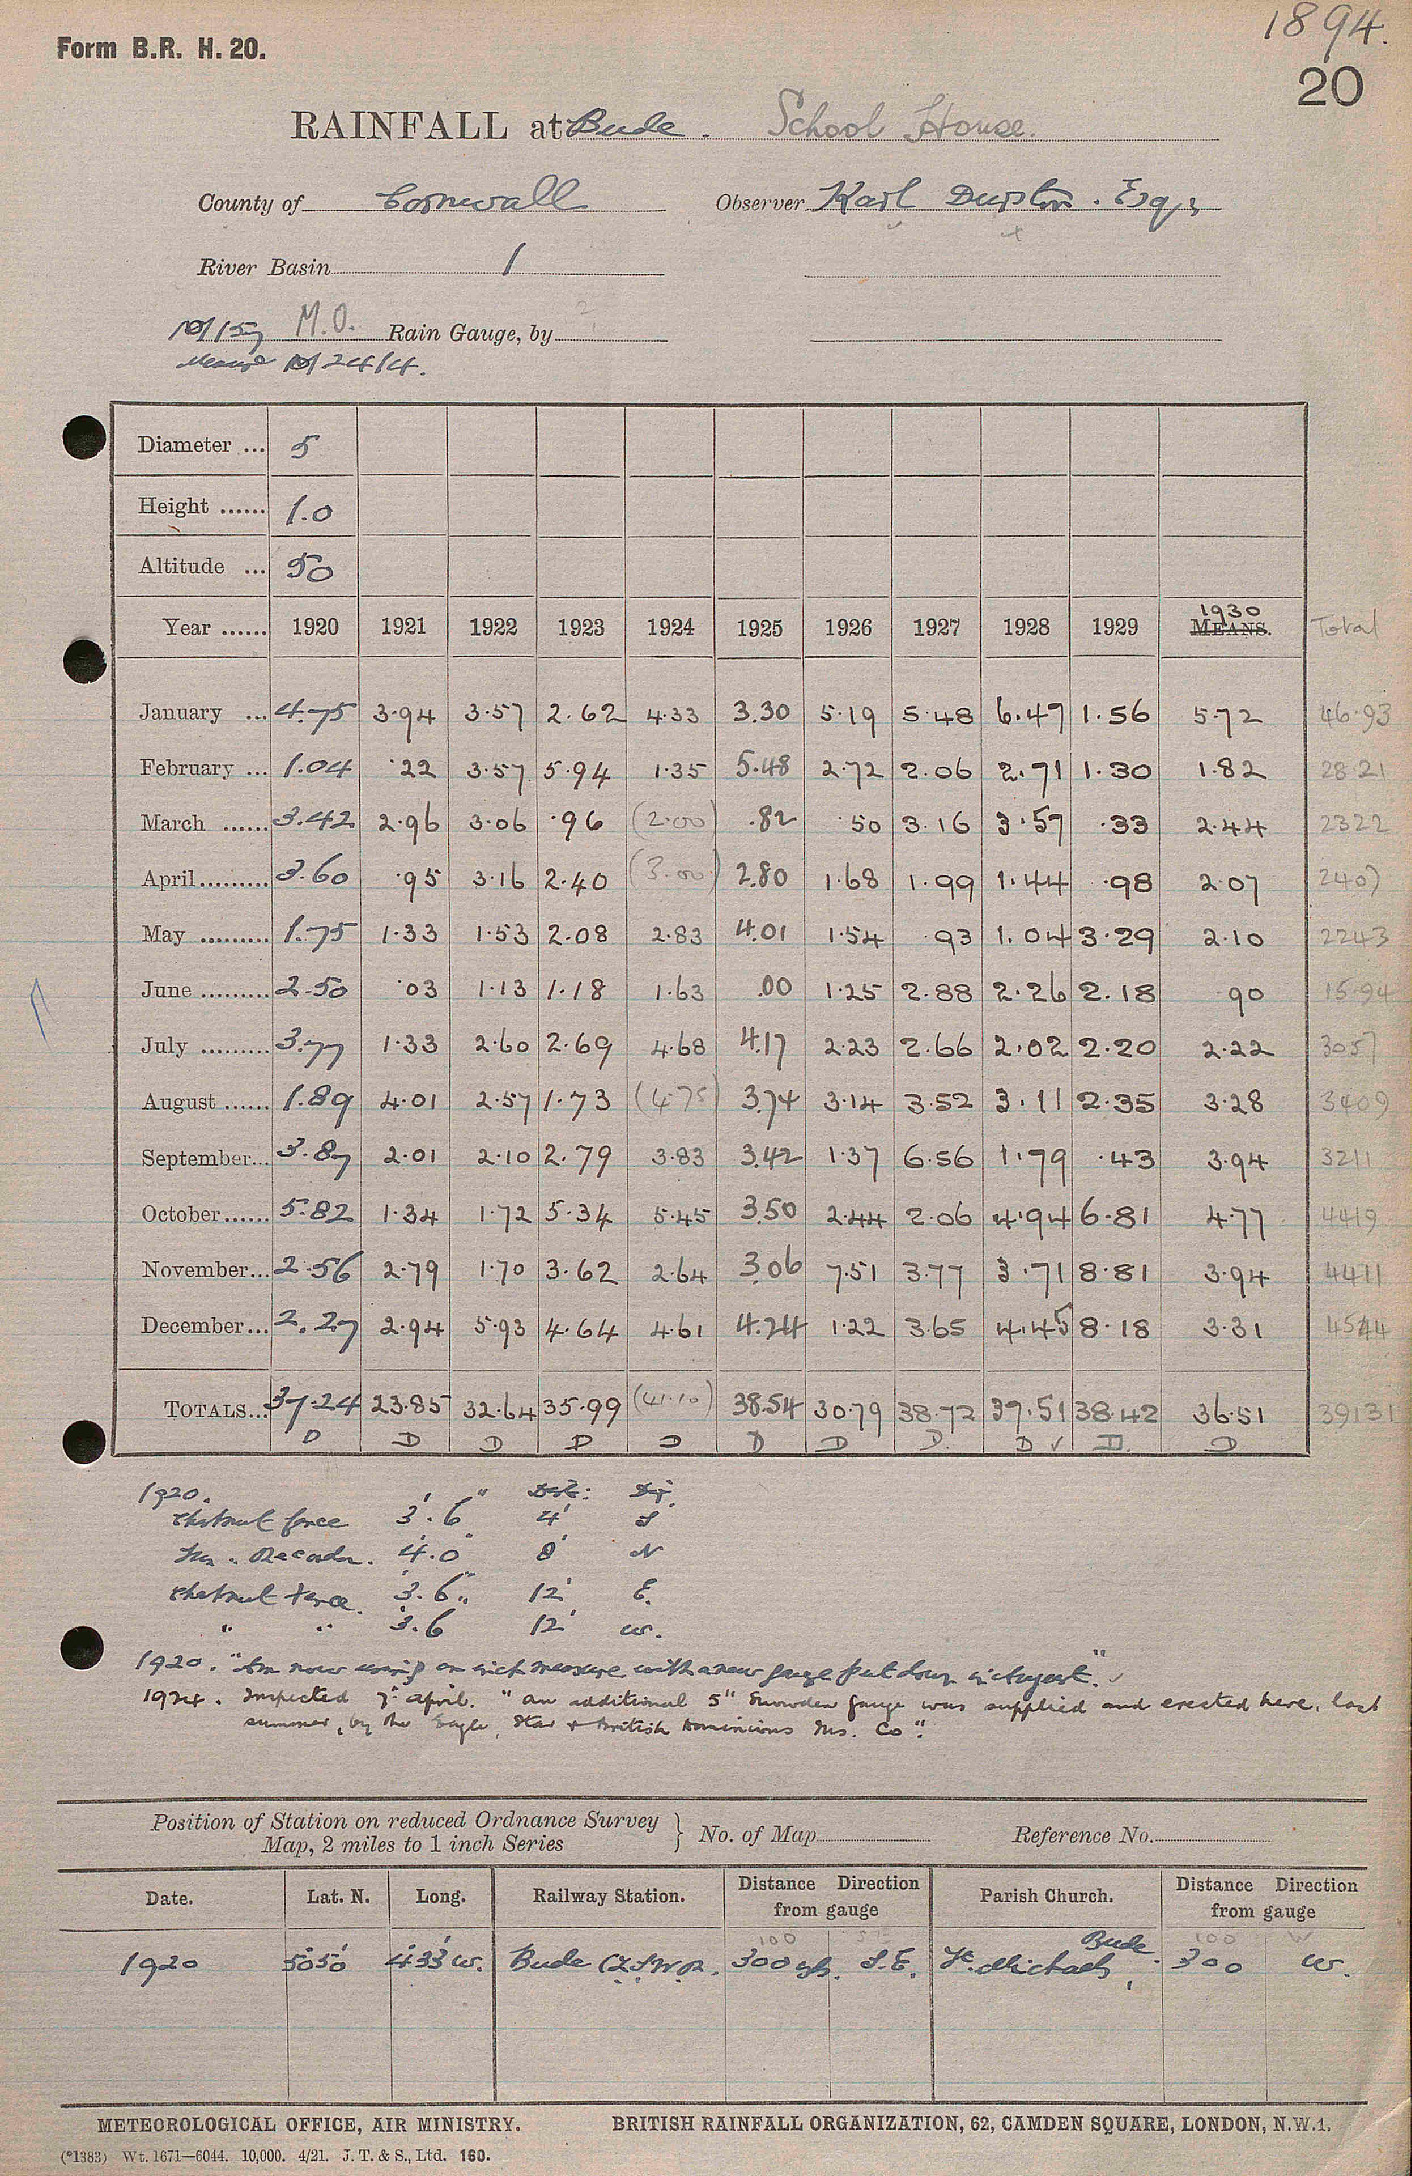 1894.
Form B.R. H. 20.
20
RAINFALL at Bude. School House.
County of Cornwall Observer Karl Durston. Esq,
River Basin 1
M.O. Rain Gauge, by
24/4.
Diameter ... 5
Height ...... 1.0
Altitude ... 50
Year ...... 1920 1921 1922 1923 1924 1925 1926 1927 1928 1929 1930 MEANS. Total
January ... 4.75 3.94 3.57 2.62 4.33 3.30 5.19 5.48 6.47 1.56 5.72 46.93
February ... 1.04 .22 3.57 5.94 1.35 5.48 2.72 2.06 2.71 1.30 1.82 28.21
March ...... 3.42 2.96 3.06 .96 (2.00) .82 .50 3.16 3.57 .33 2.44 2322
April ......... 3.60 .95 3.16 2.40 (3.00) 2.80 1.68 1.99 1.44 .98 2.07 2407
May ......... 1.75 1.33 1.53 2.08 2.83 4.01 1.54 .93 1.04 3.29 2.10 2243
June ......... 2.50 .03 1.13 1.18 1.63 .00 1.25 2.88 2.26 2.18 .90 15.94
July ......... 3.77 1.33 2.60 2.69 4.68 4.17 2.23 2.66 2.02 2.20 2.22 3057
August ...... 1.89 4.01 2.57 1.73 (4.75) 3.74 3.14 3.52 3.11 2.35 3.28 3409
September... 3.87 2.01 2.10 2.79 3.83 3.42 1.37 6.56 1.79 .43 3.94 3211
October ...... 5.82 1.34 1.72 5.34 5.45 3.50 2.44 2.06 4.94 6.81 4.77 4419
November... 2.56 2.79 1.70 3.62 2.64 3.06 7.51 3.77 3.71 8.81 3.94 4411
December... 2.27 2.94 5.93 4.64 4.61 4.24 1.22 3.65 4.45 8.18 3.31 4544
TOTALS... 37.24 23.85 32.64 35.99 (41.10) 38.54 30.79 38.72 37.51 38.42 36.51 39131
D D D D D D D D. D ✓ D. D
1920. Dist: Dir.
Chestnut fence 3'.6" 4' S
4'.0" 8' N
Chestnut fence. 3'.6" 12' E.
" " 3.6 12' W.
1920. "Am now using an inch measure with a new gauge put down in August." ✓
1924. Inspected 7th April. "an additional 5" Snowdon gauge was supplied and erected here, last
summer, by the Eagle, Star & British Dominions Ins. Co".
Position of Station on reduced Ordnance Survey Map, 2 miles to 1 inch Series } No. of Map Reference No.
Date. Lat. N. Long. Railway Station. Distance Direction from gauge Parish Church. Distance Direction from gauge
100 S E 100 W
1920 50°50' 4°33'W. Bude (L.S.W.R. 300 yds. S.E. St. Michaels, Bude 300 W.
METEOROLOGICAL OFFICE, AIR MINISTRY. BRITISH RAINFALL ORGANIZATION, 62, CAMDEN SQUARE, LONDON, N.W.1.
(*1383) Wt. 1671—6044. 10,000. 4/21. J. T. & S., Ltd. 160.